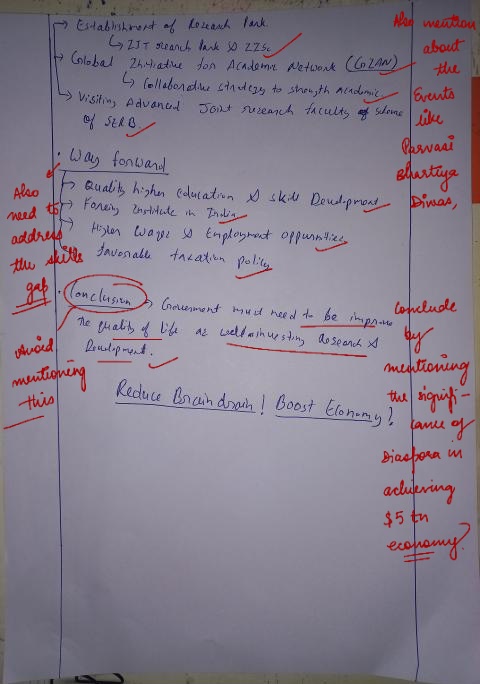 → Establishment of Research Park
↳ IIT research Park & IISc
→ Global Initiative for Academic Network (GIAN)
↳ Collaborative strategies to strength academic.
→ Visiting Advanced Joint research faculty of scheme
of SERB
• Way forward
→ Quality higher education & skill Development
→ Foreign Institute in India
→ Higher Wages & Employment oppurnities
favorable taxation policy
• Conclusion
→ Government must need to be improve
the quality of life as well as investing Research &
Development.
Reduce Braindrain! Boost Economy!
Also mention
about
the
Events
like
Parvasi
Bhartiya
Diwas,
Also
need to
address
the skills
gap
Avoid
mentioning
this
Conclude
by
mentioning
the signifi-
cance of
Diaspora in
achieving
$5 tn
economy.